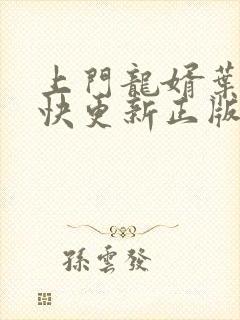 上門龍婿葉
快更新正版
孫雲發